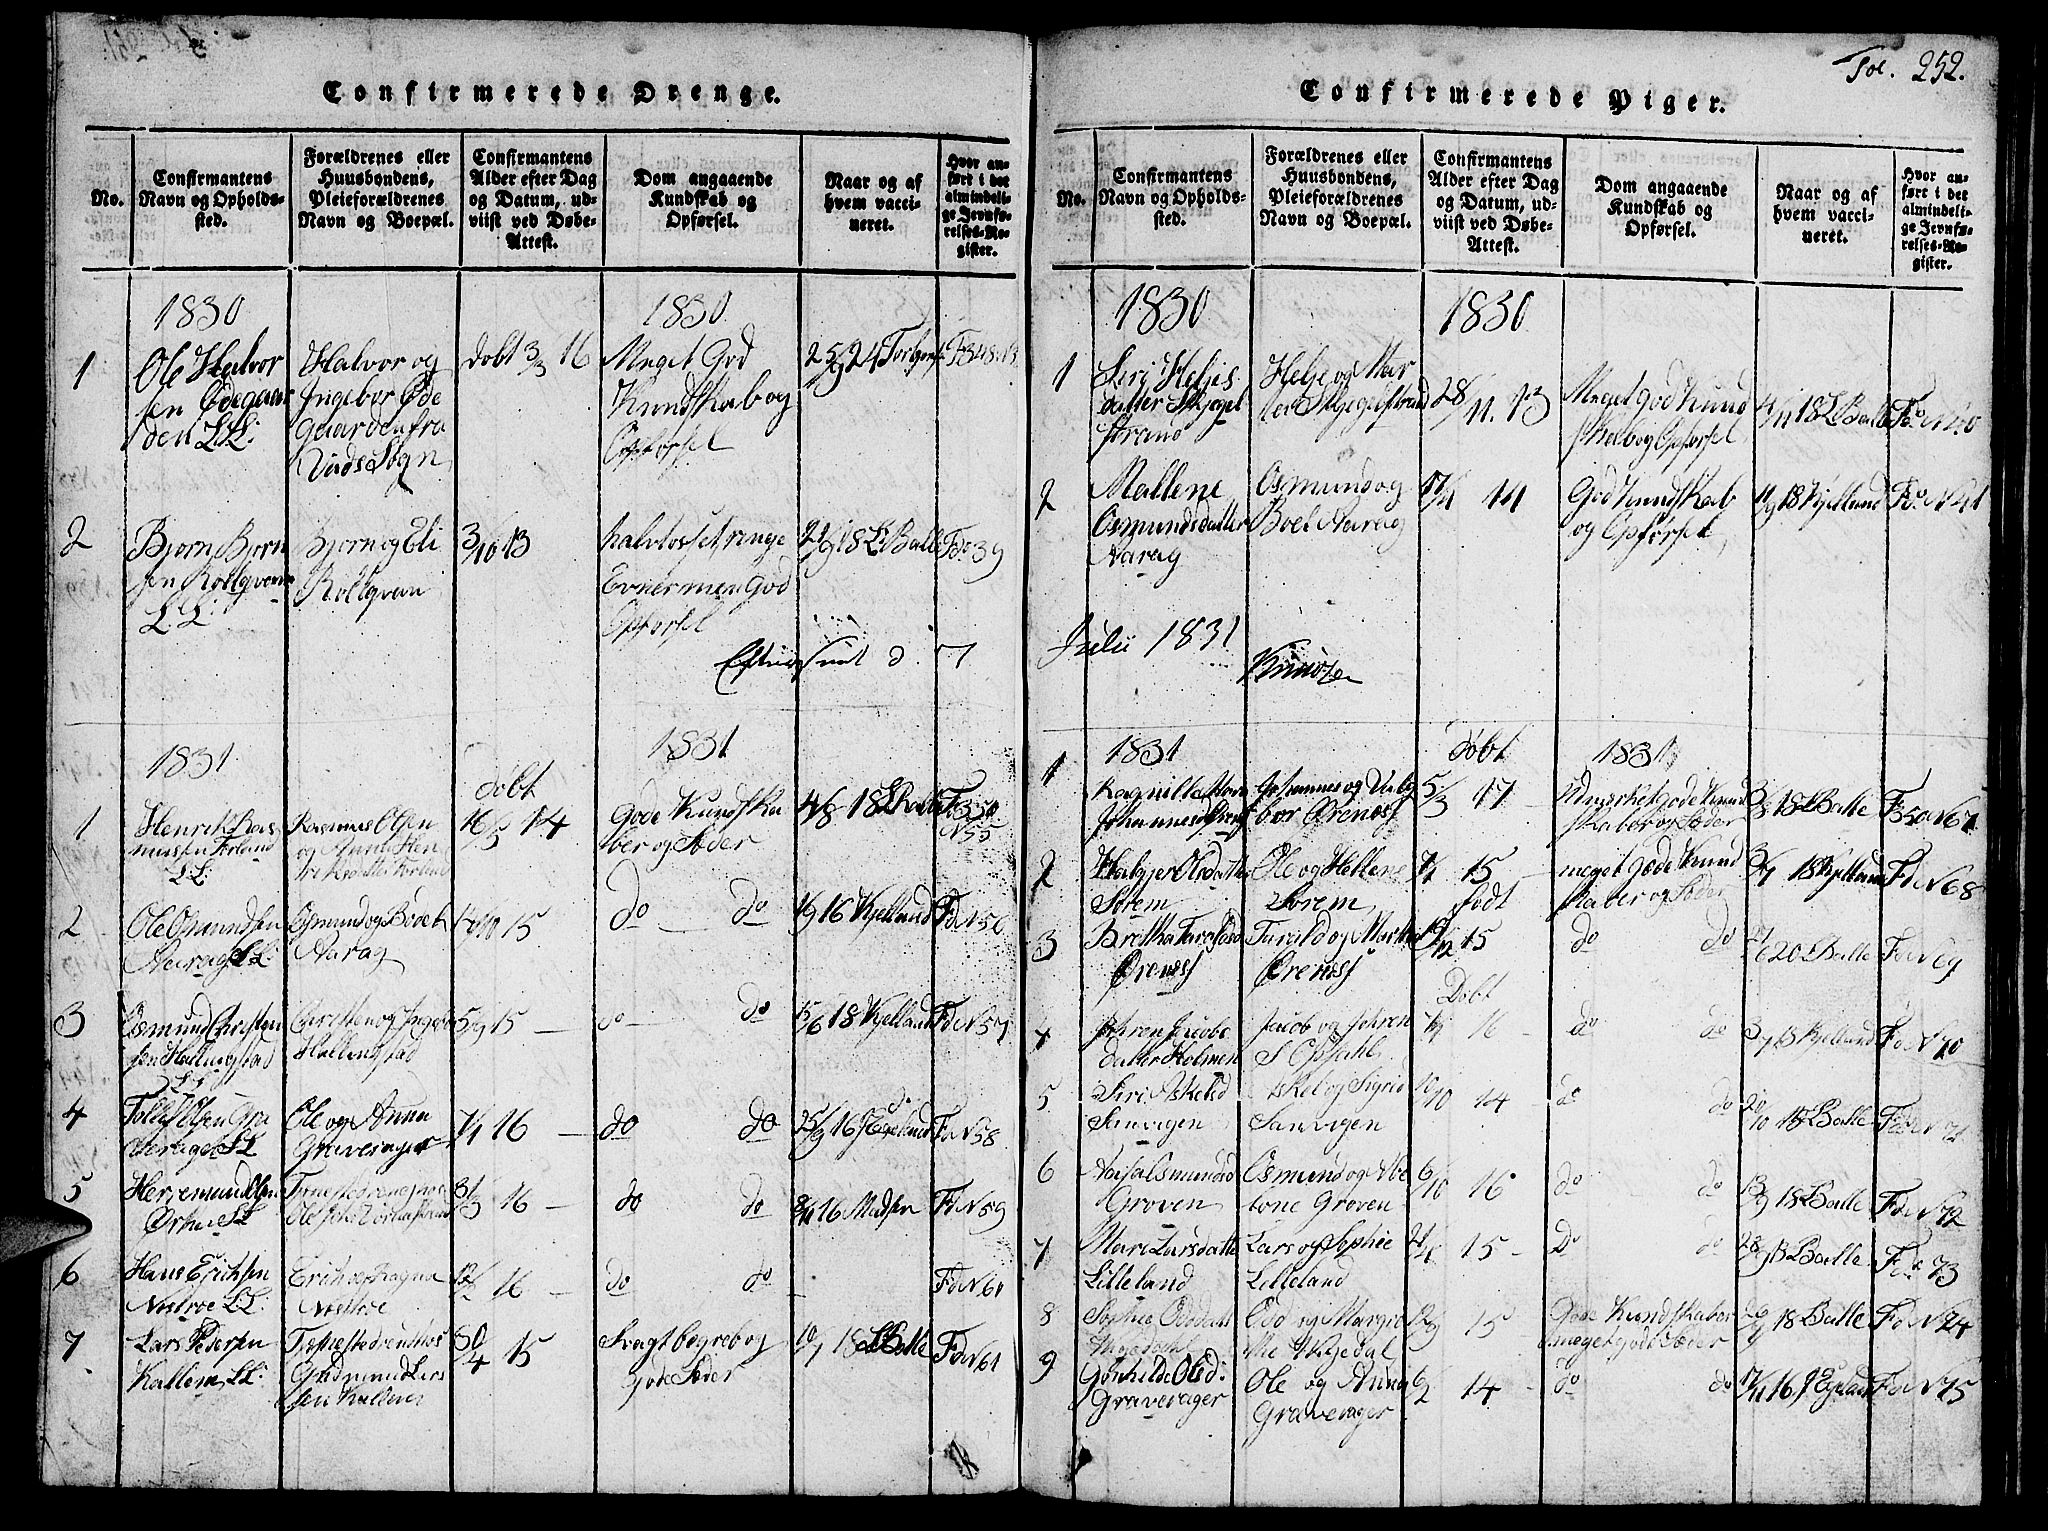 Fol. 252.
Confirmerede Drenge.
No.
Confirmantens
Navn og Opholds-
sted.
Forældrenes eller
Huusbondens,
Pleieforældrenes
Navn og Boepæl.
Confirmantens
Alder efter Dag
og Datum, ud-
viist ved Døbe-
Attest.
Dom angaaende
Kundskab og
Opførsel.
Naar og af
hvem vacci-
neret.
Hvor an-
ført i det
almindeli-
ge Jevnfø-
relses-Re-
gister.
1830
1830
1
Ole Halvor
sen Ødegaar
den LL:
Halvor og
Ingebor Øde
gaarden fra
Sogn
døbt 3/3 16
Meget God
Kundskab og
Opførsel
2
Bjørn Bjørn
sen
LL:
Bjørn og Eli
3/10 13
halvtosset, ringe
Evner men God
Opførsel
21/9 18 L: Balle
Fdo 39
Efterseet d. 7
1831
døbt
1831
1
Henrik Ras
mussen Torland
LL:
Rasmus Olsen
og Anne Hen
driksdatter Torland
16/5 14
Gode Kundska
ber og Sæder
4/8 18 LBalle
F 350
N 55
2
Ole Osmundsen
Aarag LL:
Osmund og Boel
Aarag
15
do do
1/9 16 Kjelland
Fdo N 56
3
Osmund Christen
sen Hallingstad
LL
Christen og Ingebor
Hallingstad
5/9 15 —
do — do
15/6 18 Kjelland
Fdo N 57
4
Tollef Olsen Gra
LL
Ole og Anna
Graverager
7/1 16 —
do do
25/9 16
Fdo N 58
5
LL
Tjenestedreng hos
Ole
31/3 16 —
do do
16 Madsen
Fdo N 59
6
Hans Erichsen
LL:
Erich og Ragna
12/ 16 —
do do
Fdo N 60
7
Lars Pedersen
Kallem LL:
Tjenestedreng hos
Gudmund Lars
sen Kallem
30/4 15
Svagt begreb og
gode Sæder
10/7 18 LBalle
Fdo N 61
Confirmerede Piger.
No.
Confirmantens
Navn og Opholds-
sted.
Forældrenes eller
Huusbondens,
Pleieforældrenes
Navn og Boepæl.
Confirmantens
Alder efter Dag
og Datum, ud-
viist ved Døbe-
Attest.
Dom angaaende
Kundskab og
Opførsel.
Naar og af
hvem vacci-
neret.
Hvor an-
ført i det
almindeli-
ge Jevnfø-
relses-Re-
gister.
1830
1830
1
Siri Heljes
datter Skjegel
strand
Helje og Mar
Skjegelstrand
28/11. 13
Meget god Kund
skab og Opførsel
4/11 18 L Balle
Fdo N 40
2
Mallene
Osmundsdatter
Aarag
Osmund og
Boel Aarag
17/4 14
God Kundskab
og Opførsel,
11/9 18 Kjelland
Fdo N 41
Julii 1831
1831
døbt
1831
1
Johannesd Ørenes
Johannes og
Ørenes
5/3 17 —
Udmærket gode Kund
skaber og Sæder
3/8 18 LBalle
F 350 N 67
2
Olsdatter
Sørem
Ole og Hellene
Sørem
7/1 15 —
født
meget gode Kund
skaber og Sæder
3/7 18 Kjelland
Fd N 68
3
Bretha Taraldsd
Ørenes
Tarald og Martha
Ørenes
19/12 15
do do
20 LBalle
Fdo N 69
Døbt
4
Jacobs
datter Holmen
Jacob og
16 —
do do
3/7 18 Kjelland
Fdo N 70
5
Siri Askelsd
Sanvigen
Askel og Sigrid
Sanvigen
10/10 14 —
do do
20/10 18 LBalle
Fdo N 71
6
Osmundsd
Groven
Osmund og Abe
lone Groven
6/10 16
do do
13/9 18 LBalle
Fdo N 72
7
Mari Larsdatter
Lilleland
Lars og Sophie
Lilleland
15 —
Do do
28/9 18 LBalle
Fdo 73
8
Sophie Oddsdatt
Odd og Margre
the
12/9 15
Gode Kundskaber
meget gode Sæder
26/9 18 Balle
Fdo N 74
9
Gønhilde Olsd:
Graverager
Ole og Anna
Graverager
6/2 14 —
do do
17/11 16
Fdo N 75